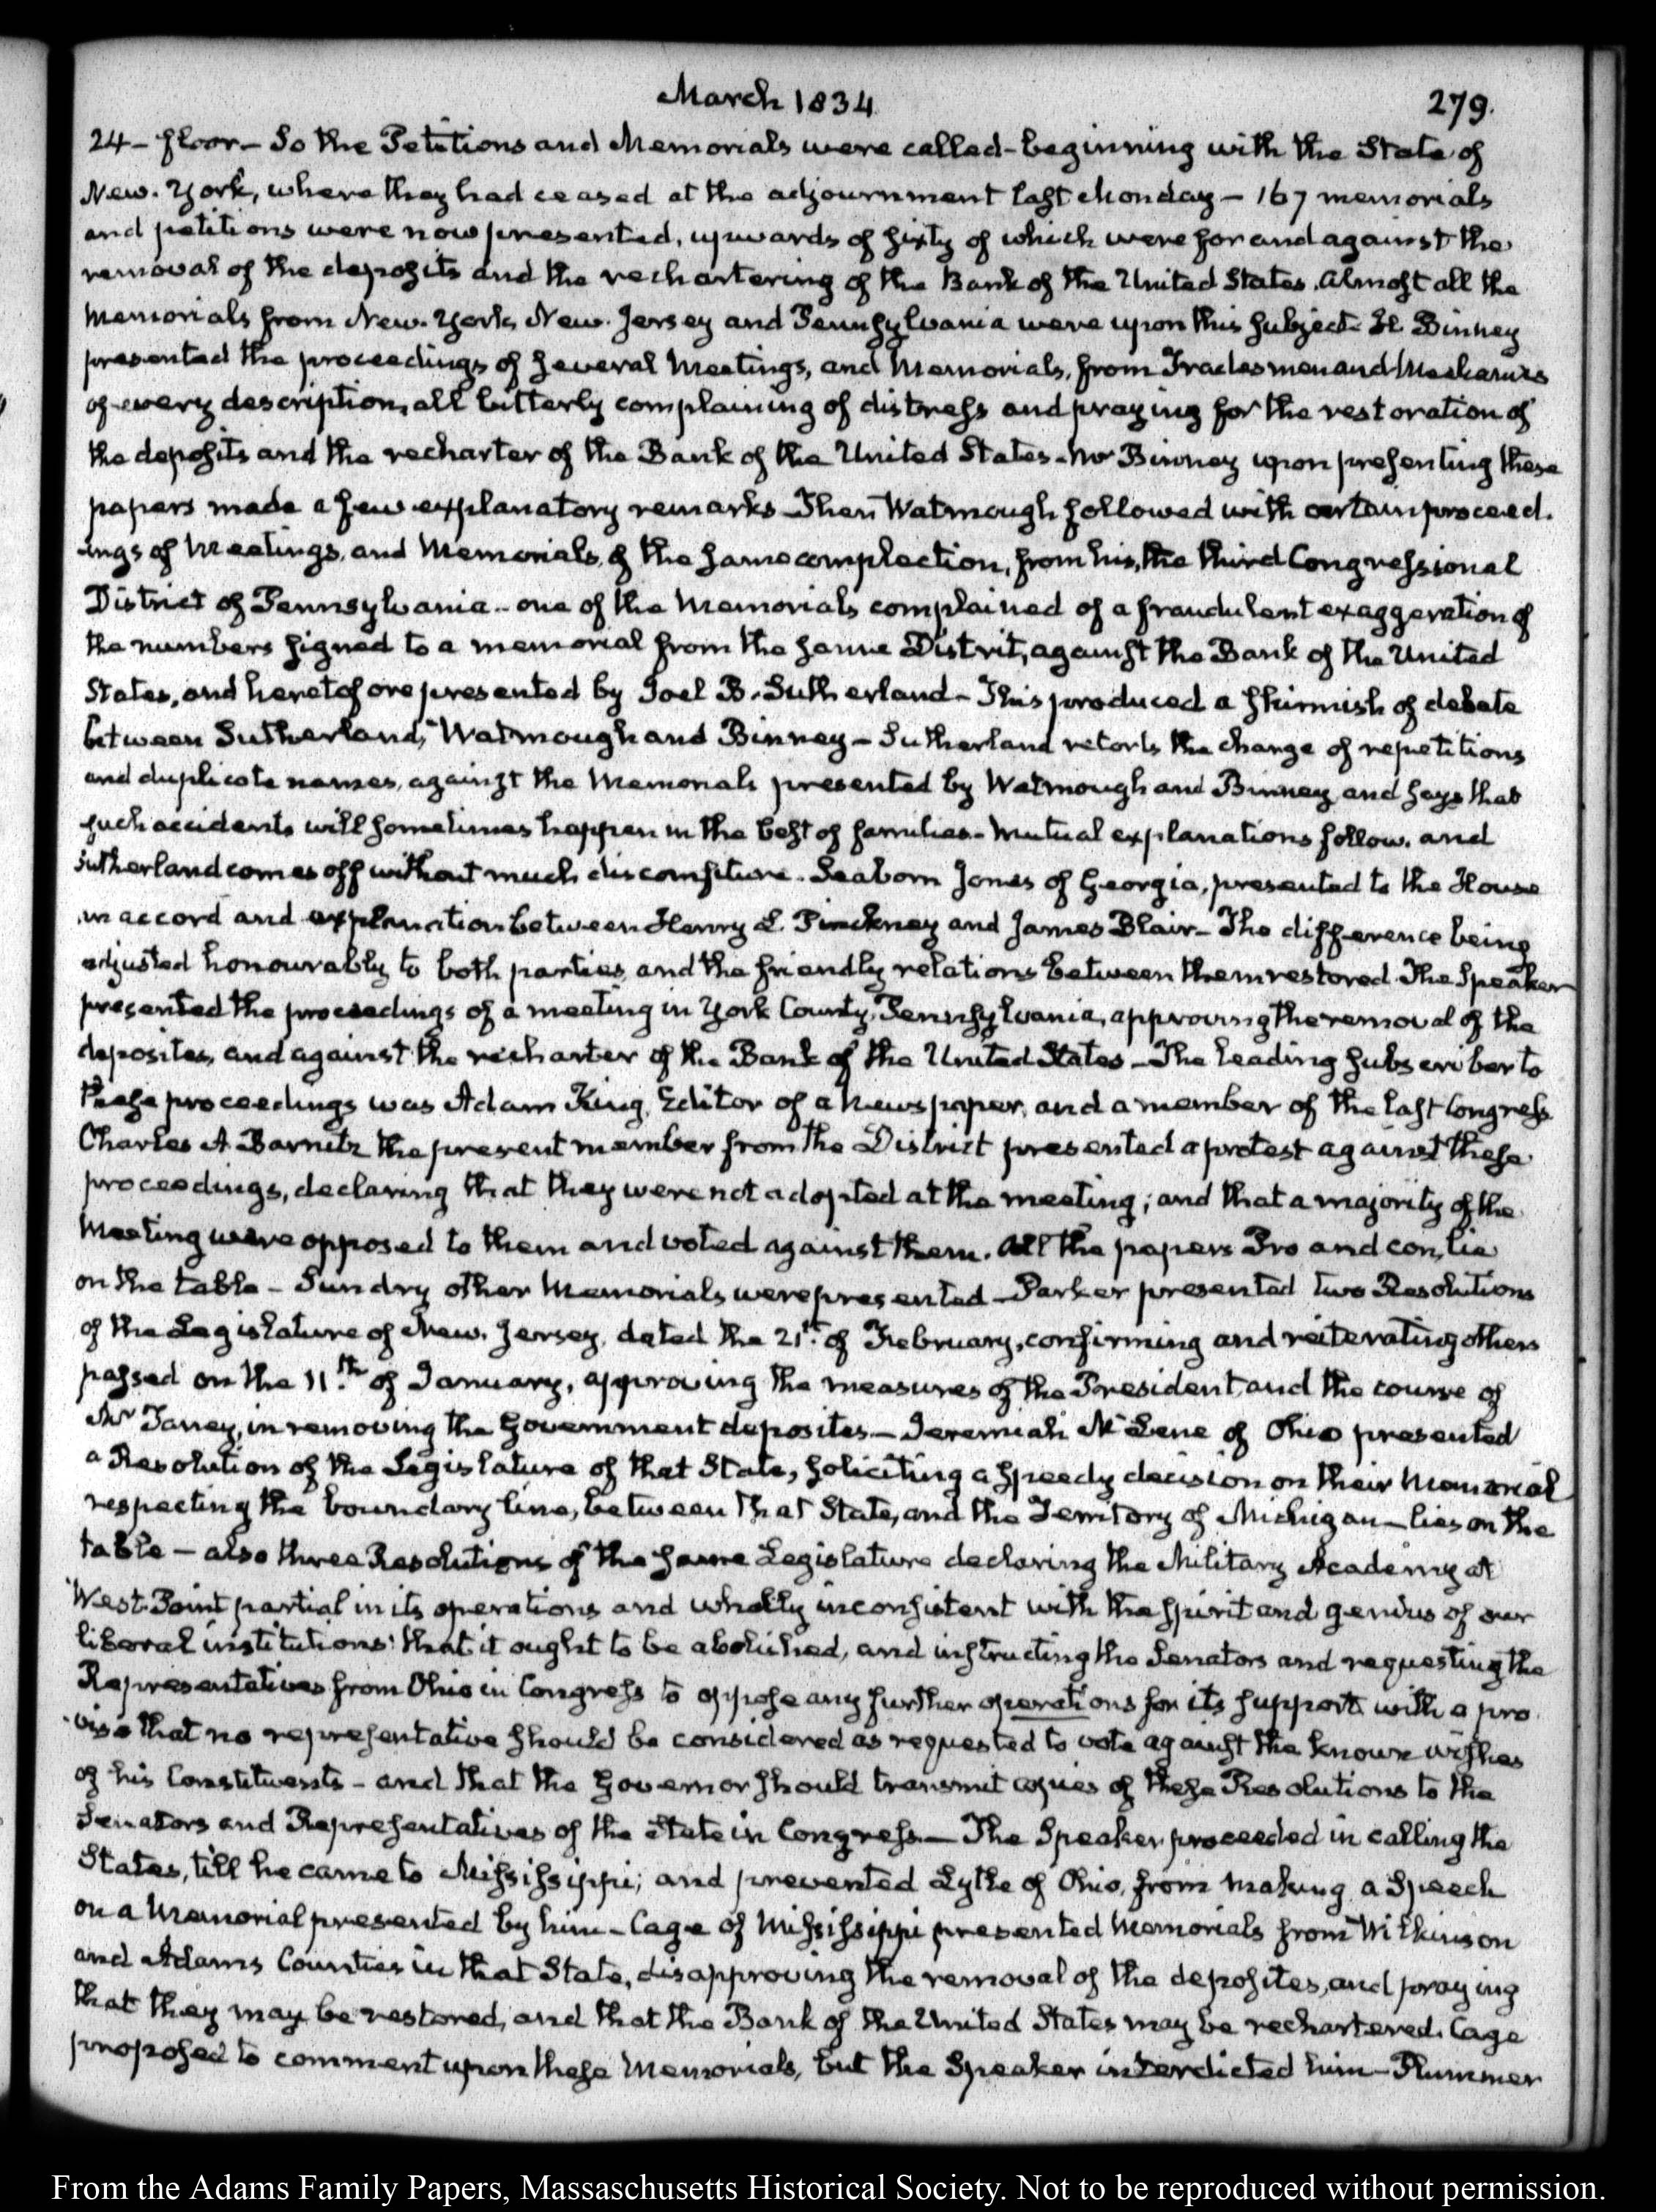 March 1834.
279.
24 – floor – So the Petitions and Memorials were called – beginning with the State of
New-York, where they had ceased at the adjournment last Monday – 167 memorials
and petitions were now presented, upwards of sixty of which were for and against the
removal of the deposits and the rechartering of the Bank of the United States. Almost all the
Memorials from New-York, New-Jersey and Pennsylvania were upon this subject. H. Binney
presented the proceedings of several Meetings, and Memorials, from Tradesmen and Mechanics
of every description, all bitterly complaining of distress and praying for the restoration of
the deposits and the recharter of the Bank of the United States – Mr Binney upon presenting these
papers made a few explanatory remarks – Then Watmough followed with certain proceed-
ings of Meetings, and Memorials, of the same complection, from his, the third Congressional
District of Pennsylvania – one of the Memorials complained of a fraudulent exaggeration of
the numbers signed to a memorial from the same District, against the Bank of the United
States, and heretofore presented by Joel B. Sutherland – This produced a skirmish of debate
between Sutherland, Watmough and Binney – Sutherland retorts the charge of repetitions
and duplicate names, against the Memorials presented by Watmough and Binney and says that
such accidents will sometimes happen in the best of families – Mutual explanations follow, and
Sutherland comes off without much discomfiture. Seaborn Jones of Georgia, presented to the House
an accord and explanation between Henry L. Pinckney and James Blair – The difference being
adjusted honourably to both parties, and the friendly relations between them restored. The Speaker
presented the proceedings of a meeting in York County, Pennsylvania, approving the removal of the
deposites, and against the recharter of the Bank of the United States – The leading subscriber to
these proceedings was Adam King, Editor of a Newspaper, and a member of the last Congress.
Charles A Barnitz the present member from the District presented a protest against these
proceedings, declaring that they were not adopted at the meeting; and that a majority of the
Meeting were opposed to them and voted against them. All the papers Pro and con, lie
on the table – Sundry other Memorials were presented – Parker presented two Resolutions
of the Legislature of New-Jersey, dated the 21st of February, confirming and reiterating others
passed on the 11th of January, approving the measures of the President, and the course of
Mr Taney, in removing the Government deposites – Jeremiah McLene of Ohio presented
a Resolution of the Legislature of that State, soliciting a speedy decision on their Memorial
respecting the boundary line, between that State, and the Territory of Michigan – lies on the
table – also three Resolutions of the same Legislature declaring the Military Academy at
West-Point partial in its operations and wholly inconsistent with the spirit and genius of our
liberal institutions: that it ought to be abolished, and instructing the Senators and requesting the
Representatives from Ohio in Congress to oppose any further operations for its support with a pro-
viso that no representative should be considered as requested to vote against the known wishes
of his Constituents – and that the Governor should transmit copies of these Resolutions to the
Senators and Representatives of the State in Congress – The Speaker proceeded in calling the
States, till he came to Mississippi; and prevented Lytle of Ohio, from making a Speech
on a Memorial presented by him – Cage of Mississippi presented Memorials from Wilkinson
and Adams Counties in that State, disapproving the removal of the deposites, and praying
that they may be restored, and that the Bank of the United States may be rechartered. Cage
proposed to comment upon these Memorials, but the Speaker interdicted him – Plummer
From the Adams Family Papers, Massaschusetts Historical Society. Not to be reproduced without permission.